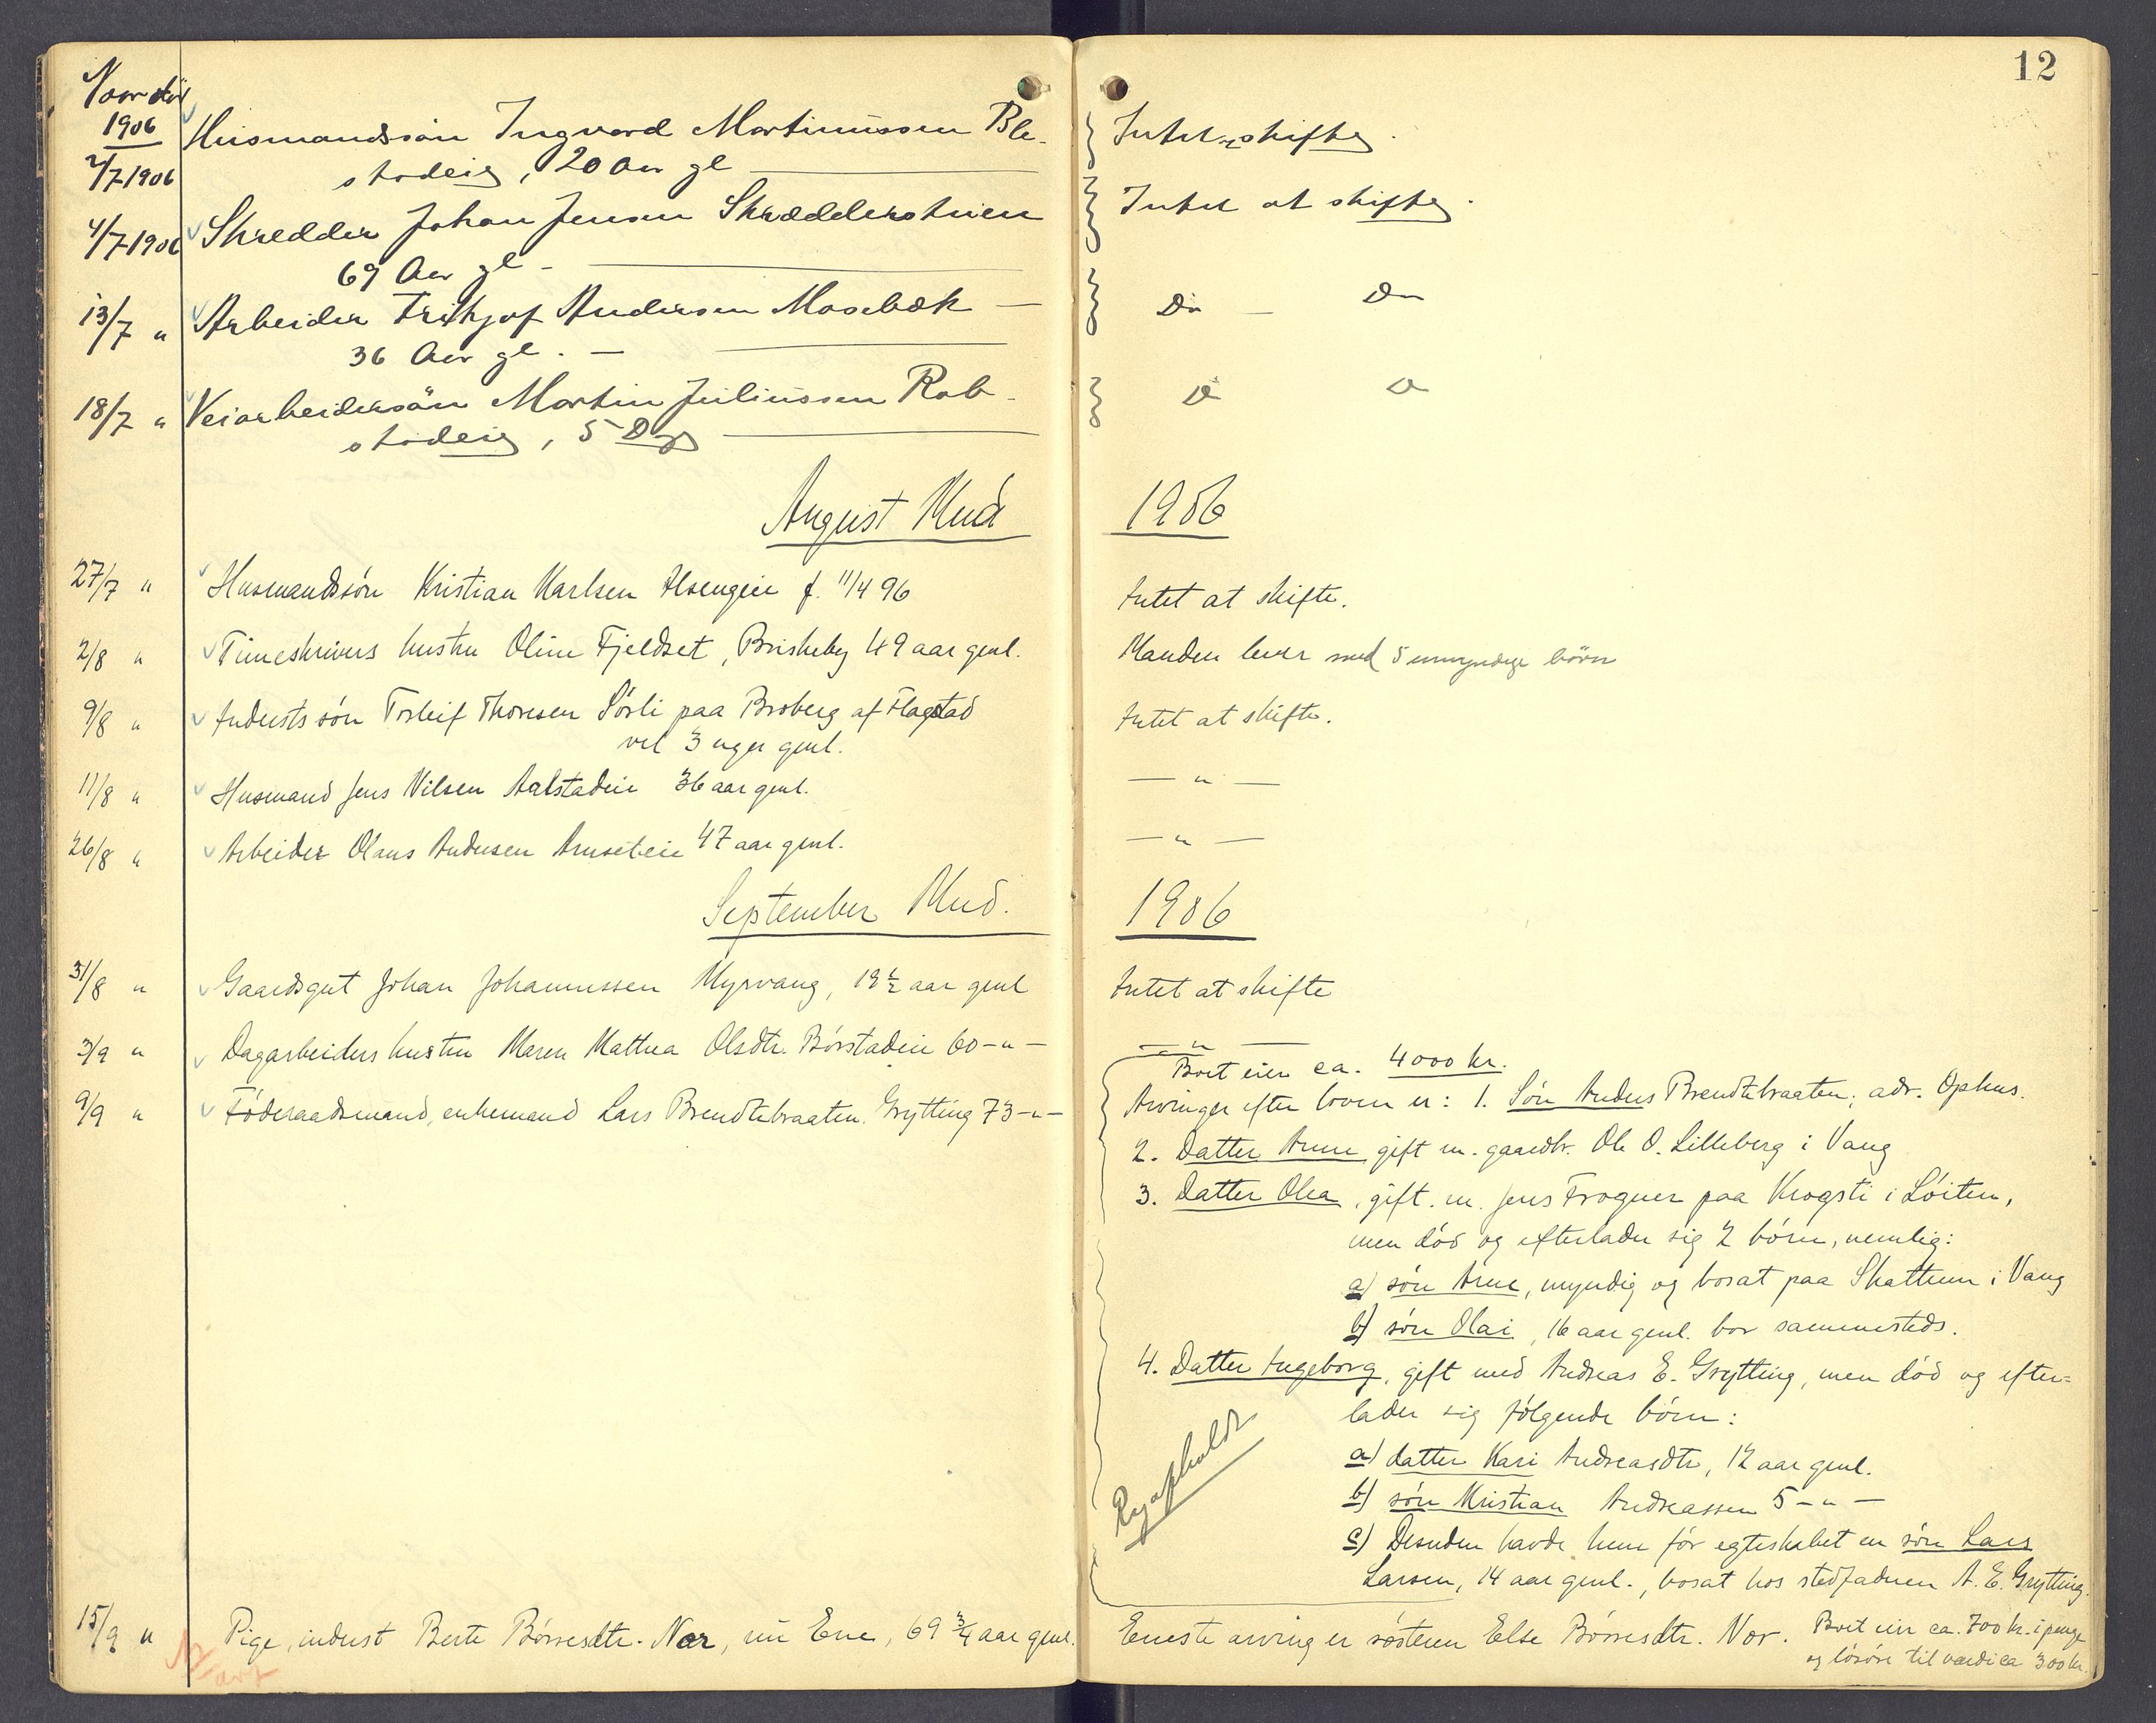 12
Naar død
1906
2/7 1906 Husmandssön Ingvard Martinussen Ble-
stadeie, 20 Aar gl
Intet at skifte.
4/7 1906 Skredder Johan Jensen Skrædderstuen
69 Aar gl -
Intet at skifte.
13/7 " Arbeider Frithjof Andersen Mosebæk —
36 Aar gl. —
Do — Do
18/7 " Veiarbeidersön Martin Juliussen Rob-
stadeie, 5 Dage
Do Do
August Mnd 1906
27/7 " Husmandssön Kristian Karlsen Alsengeie f. 11/4 96
Intet at skifte.
2/8 " Timeskrivers hustru Oline Fjeldset, Briskeby 49 aar gml.
Manden lever med 5 umyndige börn
9/8 " Inderstssön Torleif Thoresen Sörli paa Broberg af Flagstad
vel 3 uger gml.
Intet at skifte.
11/8 " Husmand Jens Nilsen Aalstadeie 36 aar gml.
— " —
26/8 " Arbeider Olaus Andersen Arnseteie 47 aar gml.
— " —
September Mnd. 1906
31/8 " Gaardsgut Johan Johannessen Myrvang, 18 1/2 aar gml
Intet at skifte
3/9 " Dagarbeiders hustru Maren Mathea Olsdtr. Börstadeie 60 - " -
— " —
9/9 " Föderaadsmand, enkemand Lars Brendtebraaten Grytting 73 - " -
Boet eier ca. 4000 kr.
Arvinger efter loven er: 1. Sön Anders Brendtebraaten, adr. Ophus.
2. Datter Anne gift m. gaardbr. Ole O. Lilleberg i Vang
3. Datter Olea, gift. m. Jens Frogner paa Krogsti i Löiten,
men död og efterlader sig 2 börn, nemlig:
a) sön Arne, myndig og bosat paa Skattum i Vang
b) sön Olai, 16 aar gml. bor sammesteds.
4. Datter Ingeborg, gift med Andreas E. Grytting, men död og efter=
lader sig fölgende börn:
a) datter Kari Andreasdtr, 12 aar gml.
b) sön Kristian Andreassen 5 - " -
c) Desuden havde hun för egteskabet en sön Lars
Larsen, 14 aar gml., bosat hos stedfaderen A. E. Grytting.
15/9 " Pige, inderst Berte Börresdtr. Nor, nu Ene, 69 3/4 aar gml.
Eneste arving er sösteren Else Börresdtr. Nor. Boet eier ca. 700 kr. i penge
og lösöre til værdi ca 300 kr.